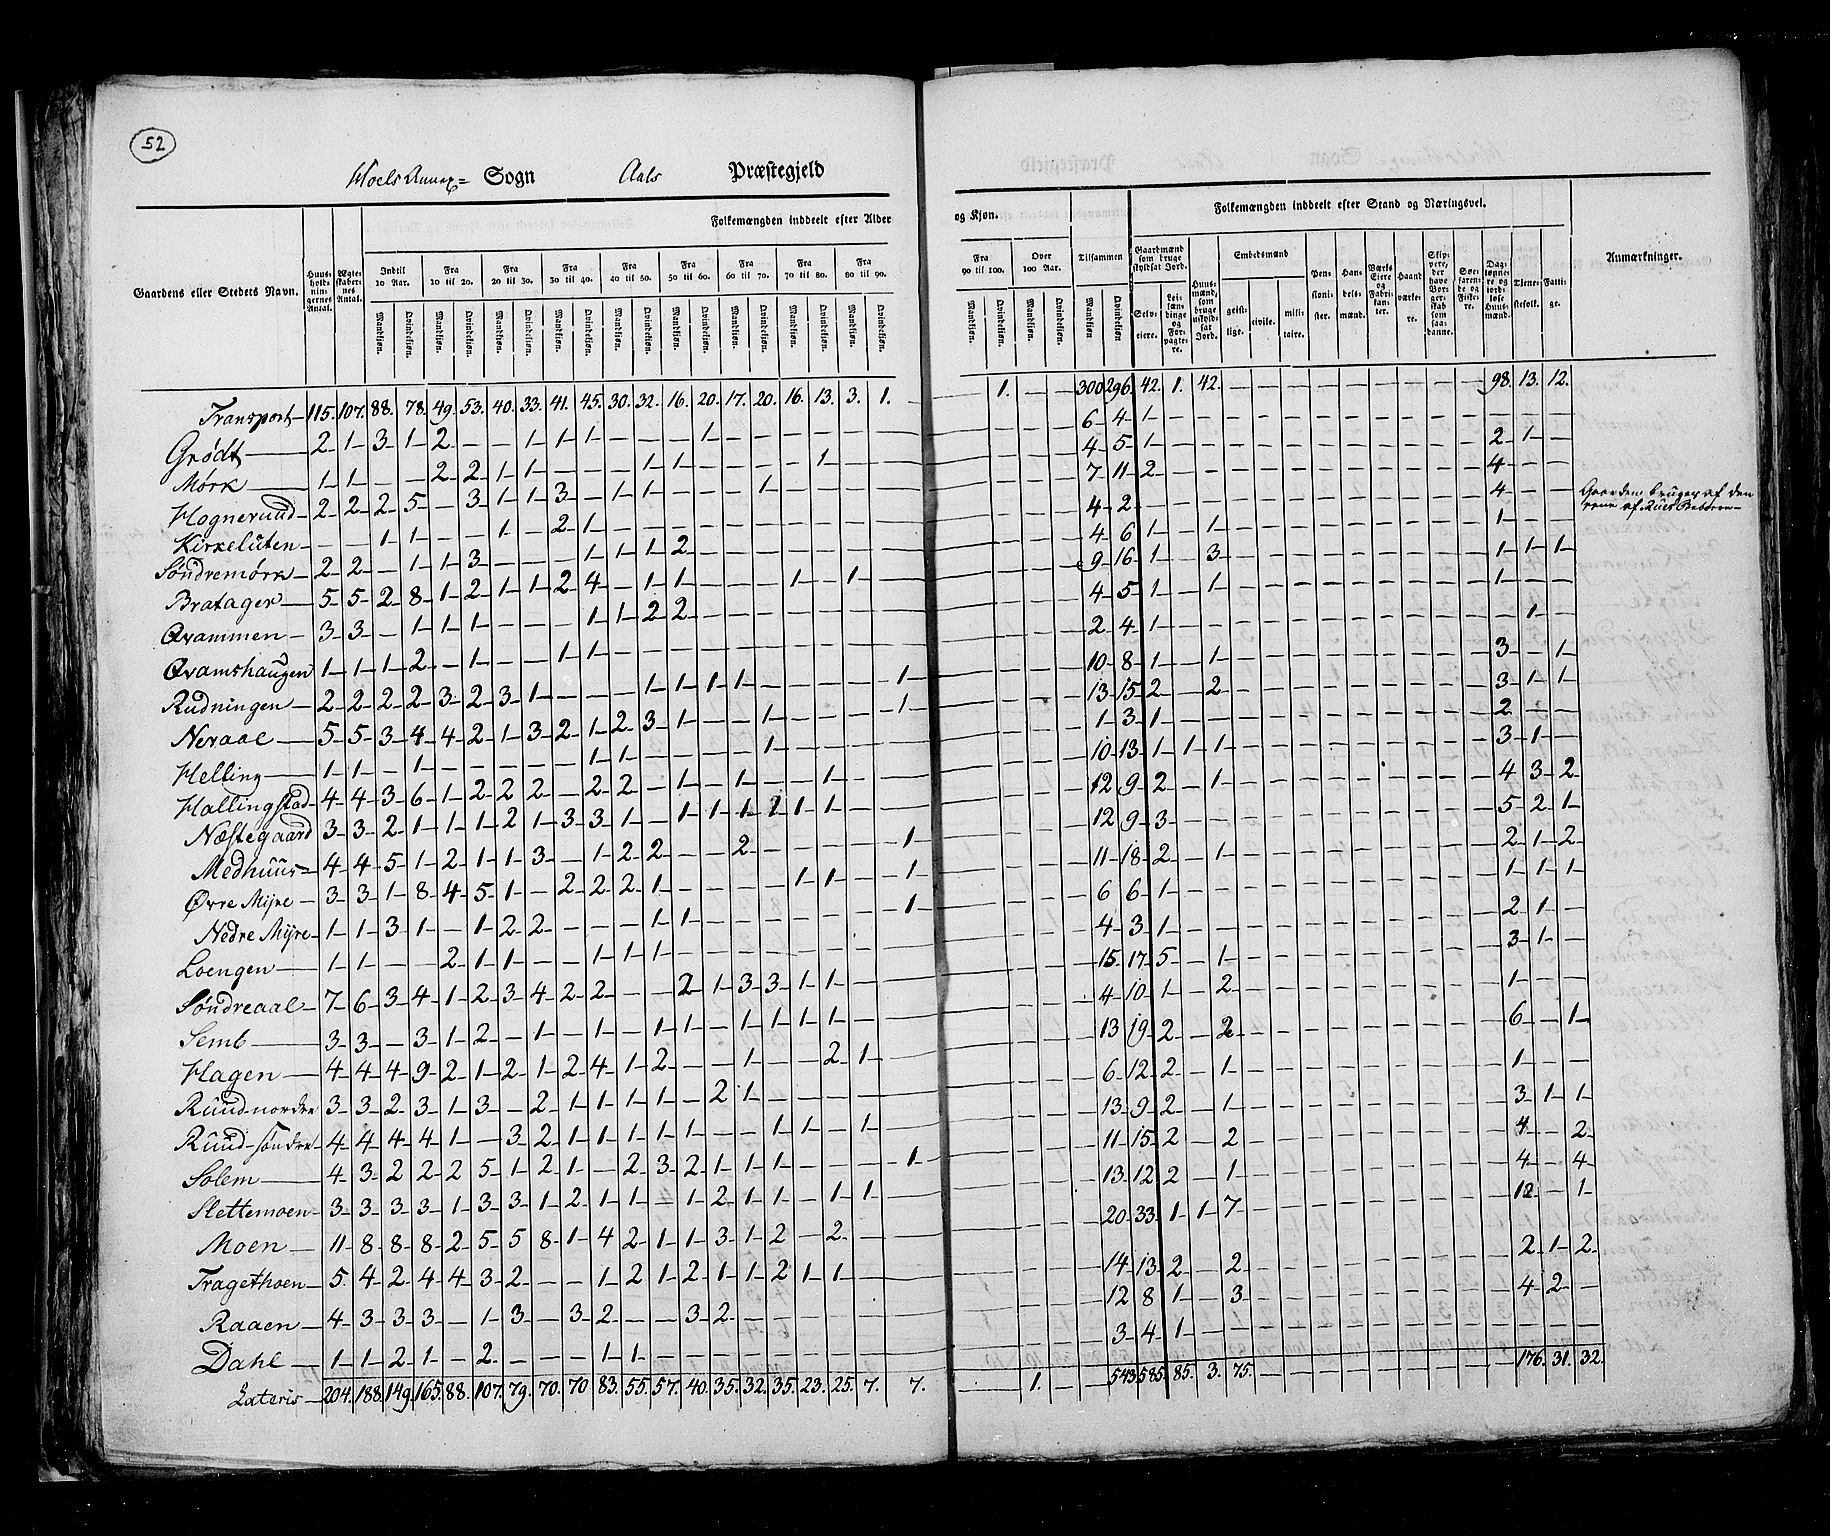 52
Hoels Annex = Sogn Aals Præstegjeld
Folkemængden inddeelt efter Alder og Kjøn. Folkemængden inddeelt efter Stand og Næringsvei.
Gaardens eller Stedets Navn. Huus-holdnin-gernes Antal. Ægte-skaber-nes Antal. Indtil 10 Aar. Fra 10 til 20. Fra 20 til 30. Fra 30 til 40. Fra 40 til 50. Fra 50 til 60. Fra 60 til 70. Fra 70 til 80. Fra 80 til 90. Fra 90 til 100. Over 100 Aar. Tilsammen Gaardmænd som bruge skyldsat Jord. Huus-mænd, som bruge uskyld-sat Jord. Embedsmænd Pen-sioni-ster. Han-dels-mænd. Værks Eiere og Fabri-kan-ter. Haand værke-re. Skip-pere, der have Bor-ger-skab som saa-danne. Søe-faren-de og Fiske-re. Dag-lønne-re og jord-løse Huus-mænd. Tjene-stefolk. Fatti-ge. Anmærkninger.
Mandkiøn. Qvindekiøn. Selv-eiere. Lei-læn-dinge og For-pagte-re. geist-lige. civile. mili-taire.
Transport 115. 107. 88. 78. 49. 53. 40. 33. 41. 45. 30. 32. 16. 20. 17. 20. 16. 13. 3. 1. — 1. — — 300 296. 42. 1. 42. — — — — — — — — — 98. 13. 12.
Grødt 2 1 3 1 2 — — 1 1 1 — — — 1 — — — — — — 6 4 1
Mørk 1 1 — — 2 2 1 1 — — — 1 1 — — — — 1 — — 4 5 1 2 1 —
Hognerud 2 2 2 5 — 3 1 1 3 — 1 1 — — — 1 — — — — 7 11 2 4 — —
Kirkeluten — — 1 1 — — 1 — 2 1 — — — — — — — — — — 4 2 — 4 — — Gaarden bruges af den
Søndremørk 2 2 — 1 1 3 — — — 1 1 1 2 — — — — — — — 4 6 1 — 1 1 — —
Bratager 5 5 2 8 1 2 1 1 2 4 — 1 1 — — — 1 — 1 — 9 16 1 — 3 1 1 1
Qvammen 3 3 — 1 1 1 — — — 1 1 2 2 — — — — — — — 4 5 1 — 1 1 — —
Qvamshaugen 1 1 1 2 — 1 — — 1 1 — — — — — — — — — — 2 4 1 — 1 —
Rudningen 2 2 2 2 3 2 3 1 — — — 1 1 1 1 — — — — 1 10 8 1 — 1 3 — 1
Neraal 5 5 3 4 4 2 1 3 2 1 2 3 1 — — 1 — — — 1 13 15 2 — 2 3 1 1
Helling 1 1 — 1 — — — — — 1 1 — — — — 1 — — — — 1 3 1 2 — —
Hallingstad 4 4 3 6 1 2 2 2 — 2 2 — 1 — 1 — — 1 — — 10 13 1 1 1 3 1 —
Næstegaard 3 3 2 1 1 1 2 1 3 3 1 — 1 1 1 1 1 1 — — 12 9 2 — 1 4 3 2
Medhuus 4 4 5 1 2 1 1 3 — 1 2 2 — — 2 — — — — 1 12 9 3 5 2 1
Øvre Mijre 3 3 1 8 4 5 1 — 2 2 2 1 — — — — 1 1 — 1 11 18 2 — 1 2 1 2
Nedre Mijre 1 1 3 1 — 1 2 2 — — — 1 1 — — — — — — 1 6 6 1 1 1 1
Loengen 1 1 — — 2 1 1 — — 1 1 1 — — — — — — — — 4 3 1 2 1 —
Søndreaal 7 6 3 4 1 2 3 4 2 2 — — 2 1 3 3 1 1 — — 15 17 5 — 1 3 1 —
Semb 3 3 — 3 1 2 — 1 — 1 — 1 1 — 1 1 1 1 — — 4 10 1 — 2 1 — —
Hagen 4 4 4 9 2 1 2 1 2 4 1 2 — — 1 — — 2 1 — 13 19 2 — 2 6 — 1
Ruud nordre 3 3 2 3 1 3 — 2 1 1 1 1 — 2 1 — — — — — 6 12 2 — 1 1 — —
Ruud søndre 4 4 4 4 1 — 3 2 1 1 1 1 1 — — 1 1 — 1 — 13 9 2 — 1 3 1 1
Solem 4 3 2 2 2 5 1 2 1 — 2 3 2 1 1 1 — — — 1 11 15 2 — 2 4 — 2
Slettemoen 3 3 3 3 1 3 3 1 2 1 1 — 1 2 1 1 — 1 1 — 13 12 2 — 1 4 — 4
Moen 11 8 8 8 2 5 5 8 1 4 2 1 1 3 1 2 — 2 — — 20 33 1 1 7 12 — 1
Tragethoen 5 4 2 4 4 3 2 — — 1 2 1 2 1 1 2 1 1 — — 14 13 2 — 2 2 1 2
Raaen 4 3 3 3 — 1 3 — 3 2 — — 3 2 — — — — — — 12 8 1 — 3 4 2 —
Dahl 1 1 2 1 — 2 — — — 1 1 — — — — — — — — — 3 4 1 — — —
Lateris 204. 188. 149. 165. 88. 107. 79. 70. 70 83. 55. 57. 40. 35. 32. 35. 23. 25. 7. 7. — 1. — — 543 585. 85. 3. 75. — — — — — — — — — 176. 31. 32.